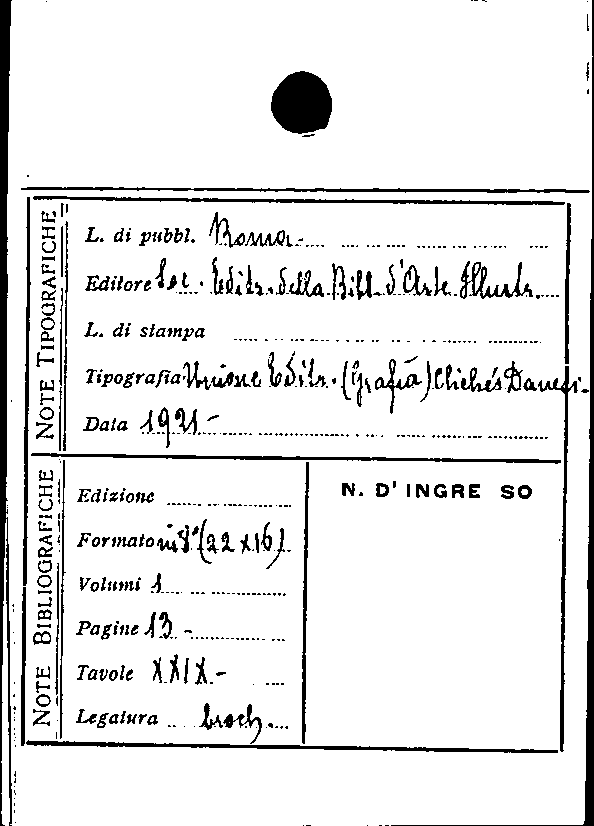 NOTE TIPOGRAFICHE
L. di pubbl. Roma.-
Editore Soc. Editr. della Bibl. d'Arte Illustr.
L. di stampa
Tipografia Unione Editr. (Grafia) Clichés Danesi.
Data 1921-
NOTE BIBLIOGRAFICHE
Edizione
Formato in 8° (22x16)
Volumi 1
Pagine 13 -
Tavole XXIX.-
Legatura broch.
N. D'INGRE SO